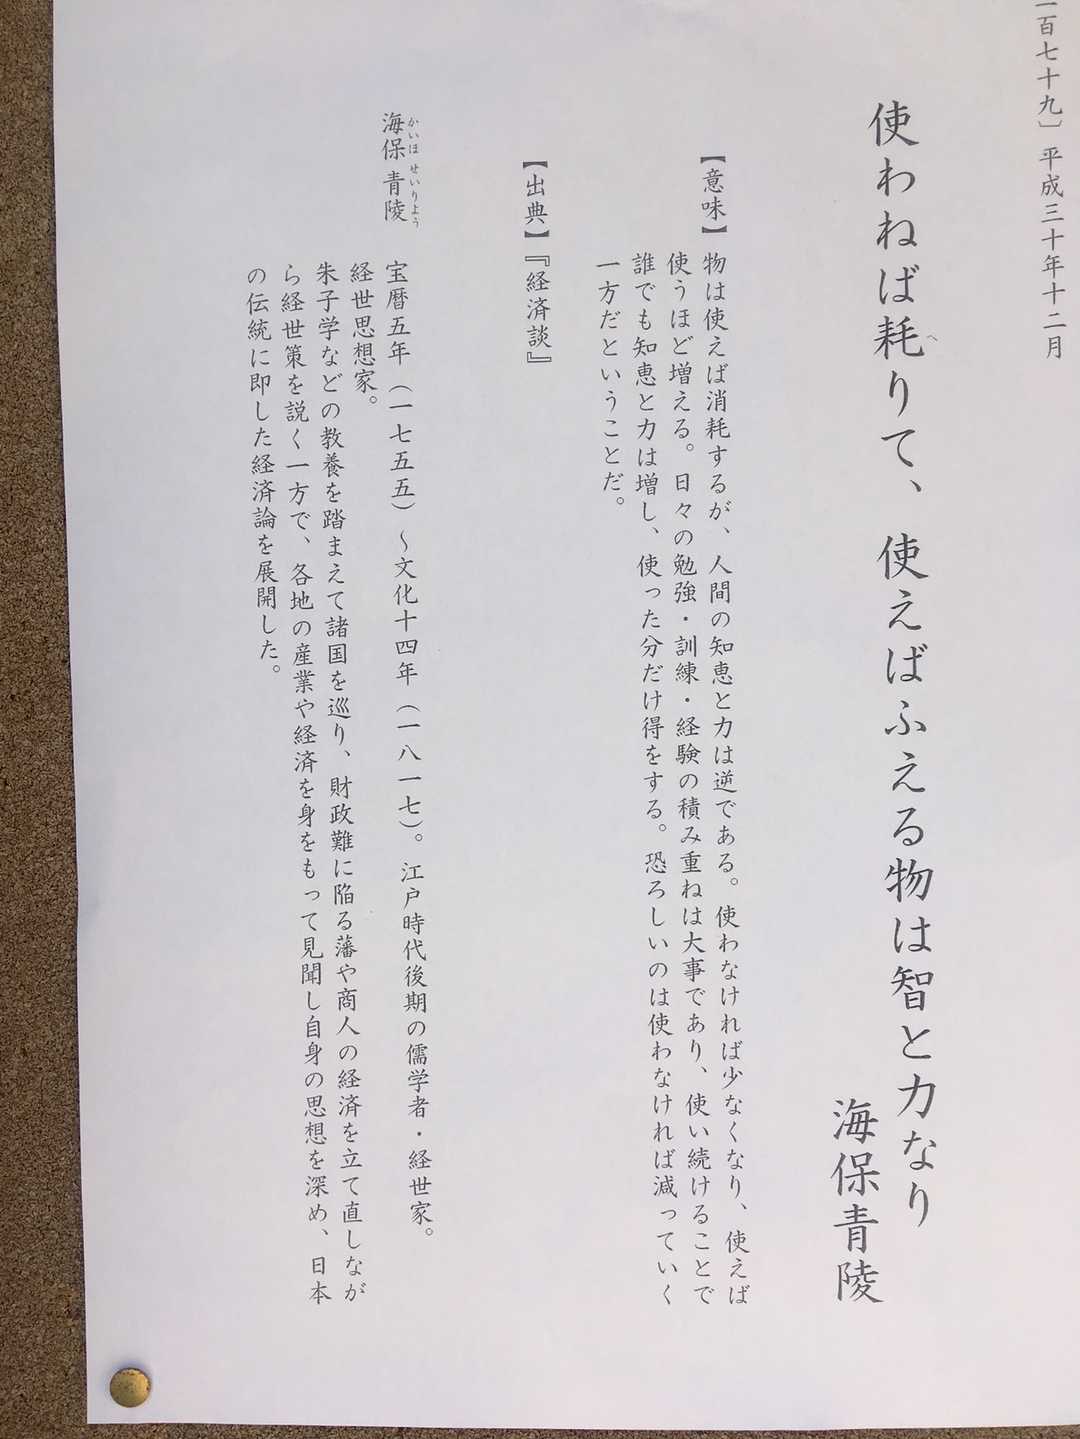 一百七十九〕平成三十年十二月
使わねば耗りて、使えばふえる物は智と力なり
へ
海保青陵
【意味】物は使えば消耗するが、人間の知恵と力は逆である。使わなければ少なくなり、使えば
使うほど増える。日々の勉強・訓練・経験の積み重ねは大事であり、使い続けることで
誰でも知恵と力は増し、使った分だけ得をする。恐ろしいのは使わなければ減っていく
一方だということだ。
【出典】『経済談』
かいほ せいりよう
海保 青陵 宝暦五年（一七五五）～文化十四年（一八一七）。江戸時代後期の儒学者・経世家。
経世思想家。
朱子学などの教養を踏まえて諸国を巡り、財政難に陥る藩や商人の経済を立て直しなが
ら経世策を説く一方で、各地の産業や経済を身をもって見聞し自身の思想を深め、日本
の伝統に即した経済論を展開した。